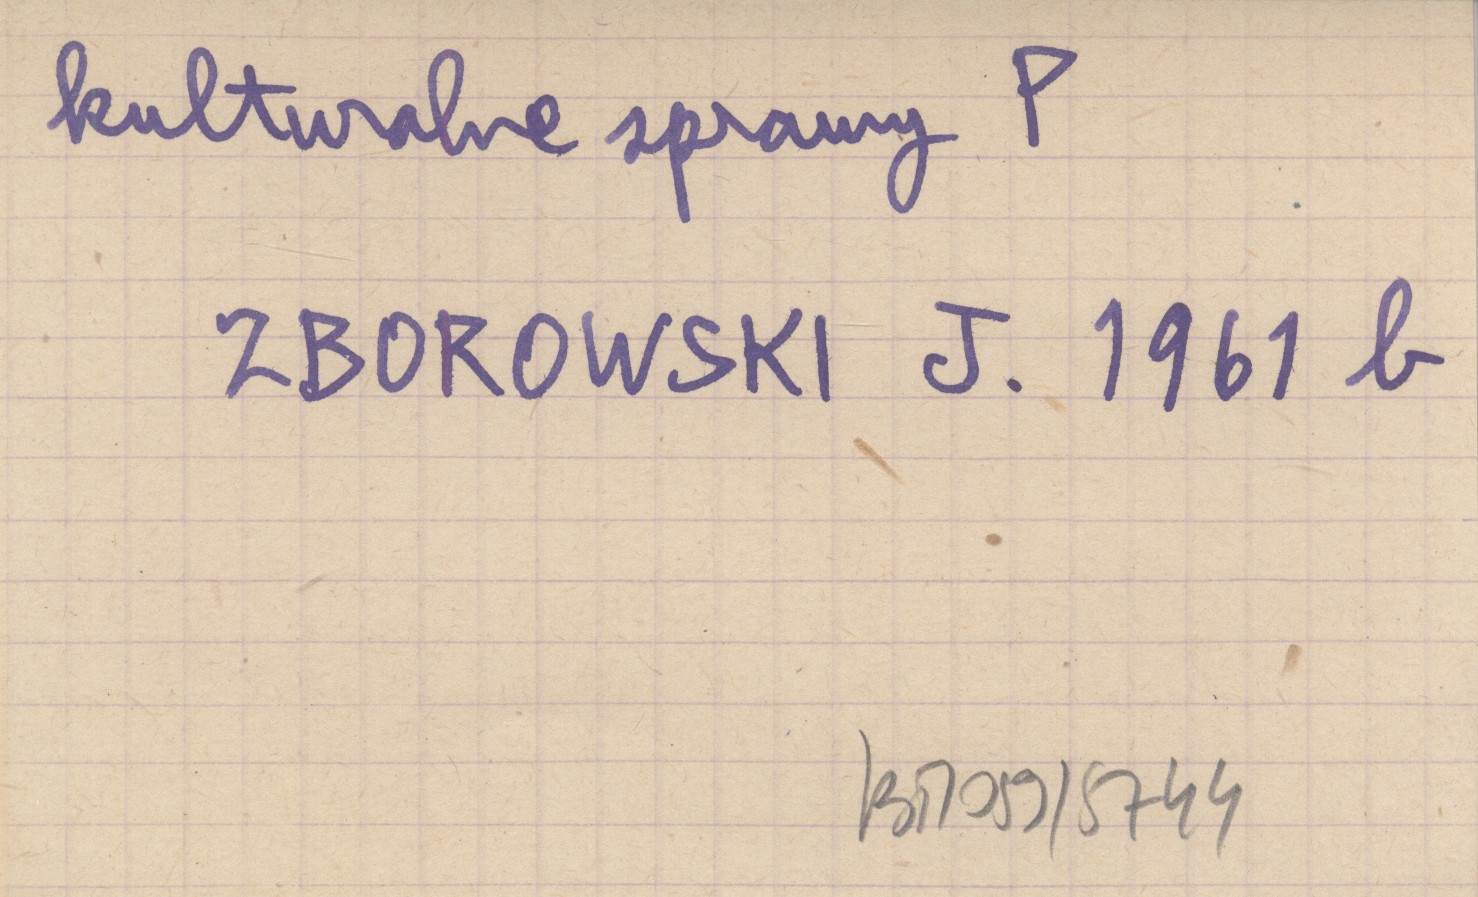 kulturalne sprawy P
ZBOROWSKI J. 1961 b